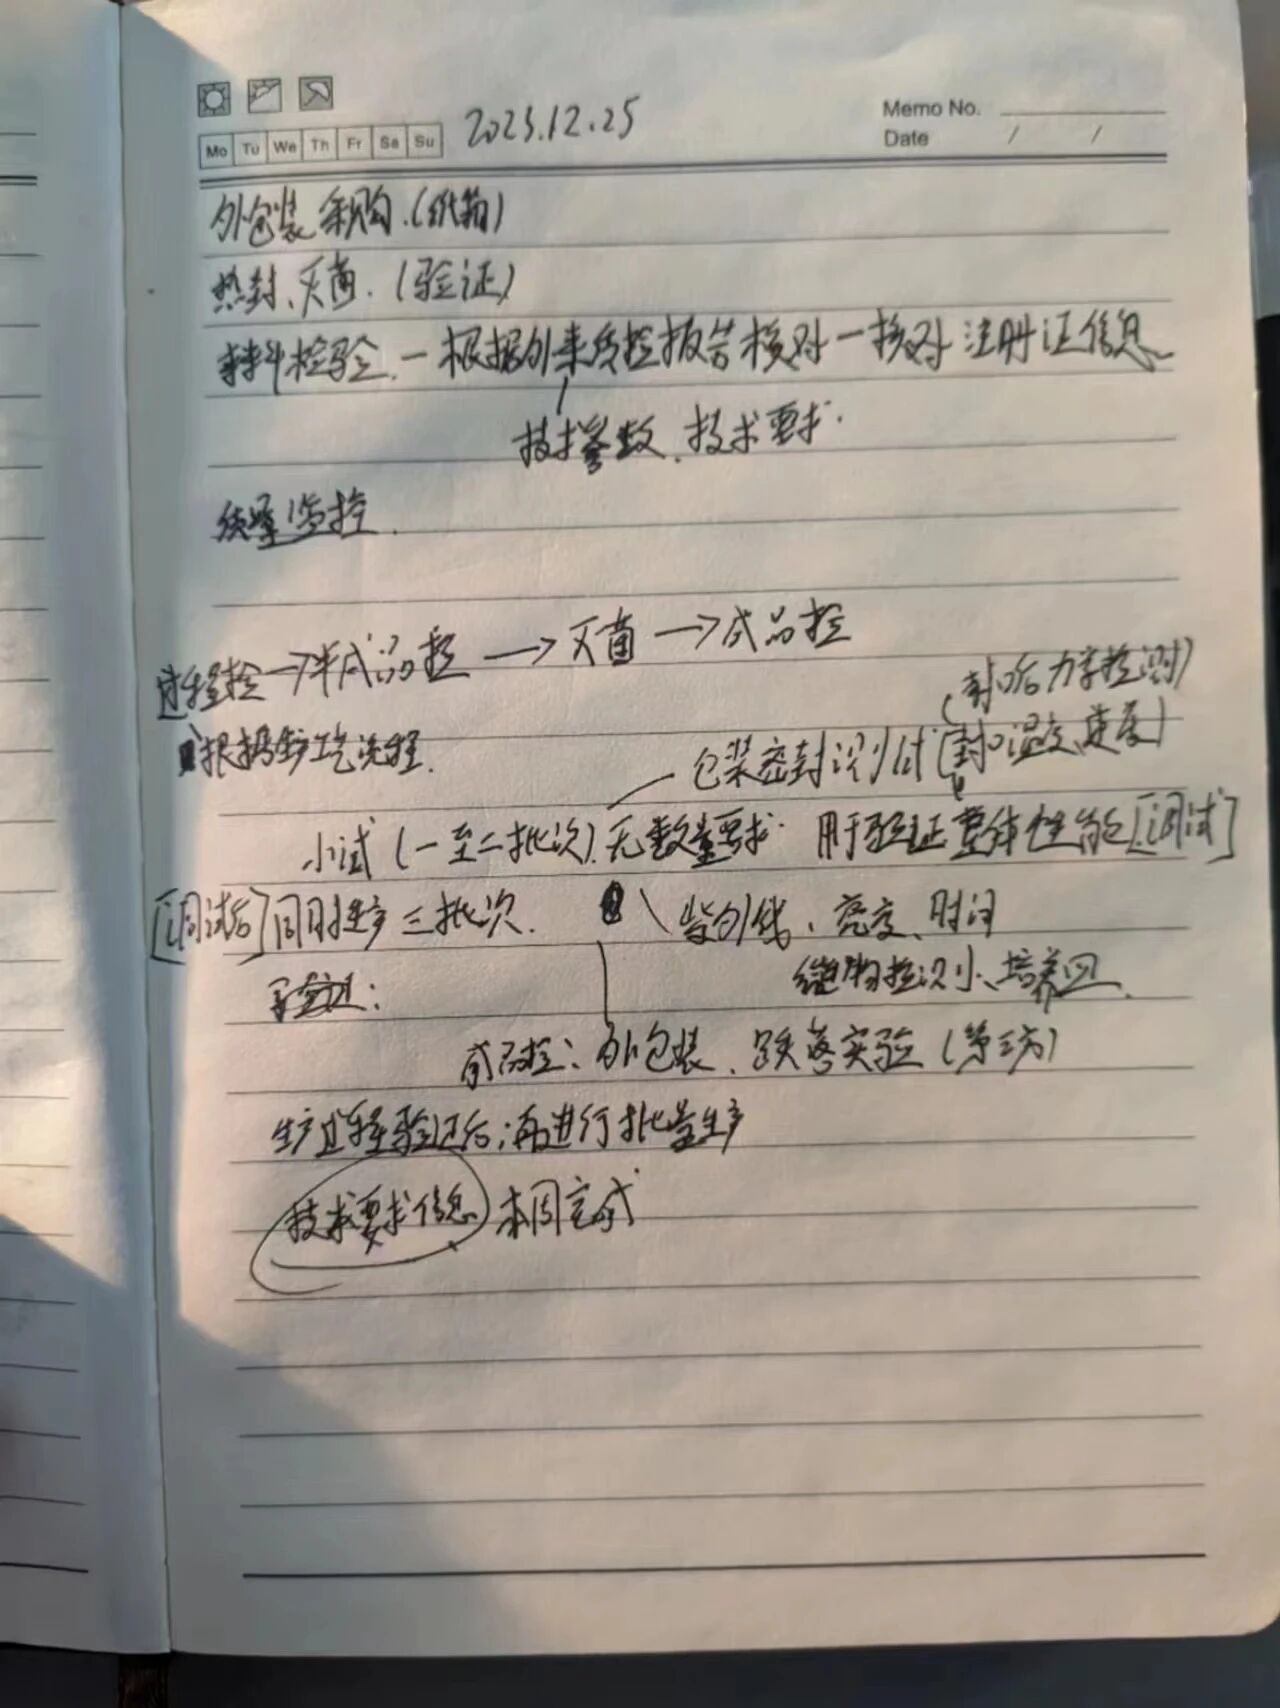 Mo Tu We Th Fr Sa Su
2025.12.25
Memo No.
Date / /
外包装采购.(纸箱)
热封、灭菌.(验证)
材料检验.一根据外来质控报告核对一核对注册证信息
技术参数、技术要求.
续监控.
过程控→半成品控→灭菌→成品控
(封口后力学检测)
根据生产工艺流程.
包装密封测试(封口温度、速度)
小试(一至二批次).无数量要求. 用于验证整体性能[调试]
[调试后]同时生产三批次.
紫外线、亮度、时间
实验:
微物检测、培养皿.
成品控:外包装、跌落实验(第三方)
生产过程验证后;再进行批量生产
技术要求信息 本周完成